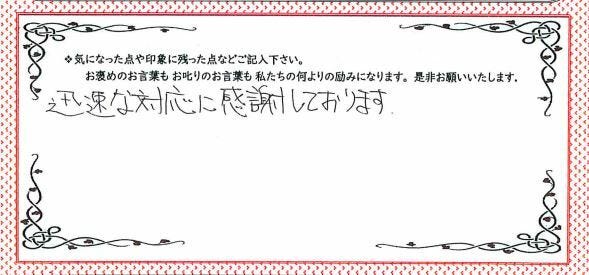 ❖気になった点や印象に残った点などご記入下さい。
お褒めのお言葉も お叱りのお言葉も 私たちの何よりの励みになります。是非お願いいたします.
迅速な対応に感謝しております.